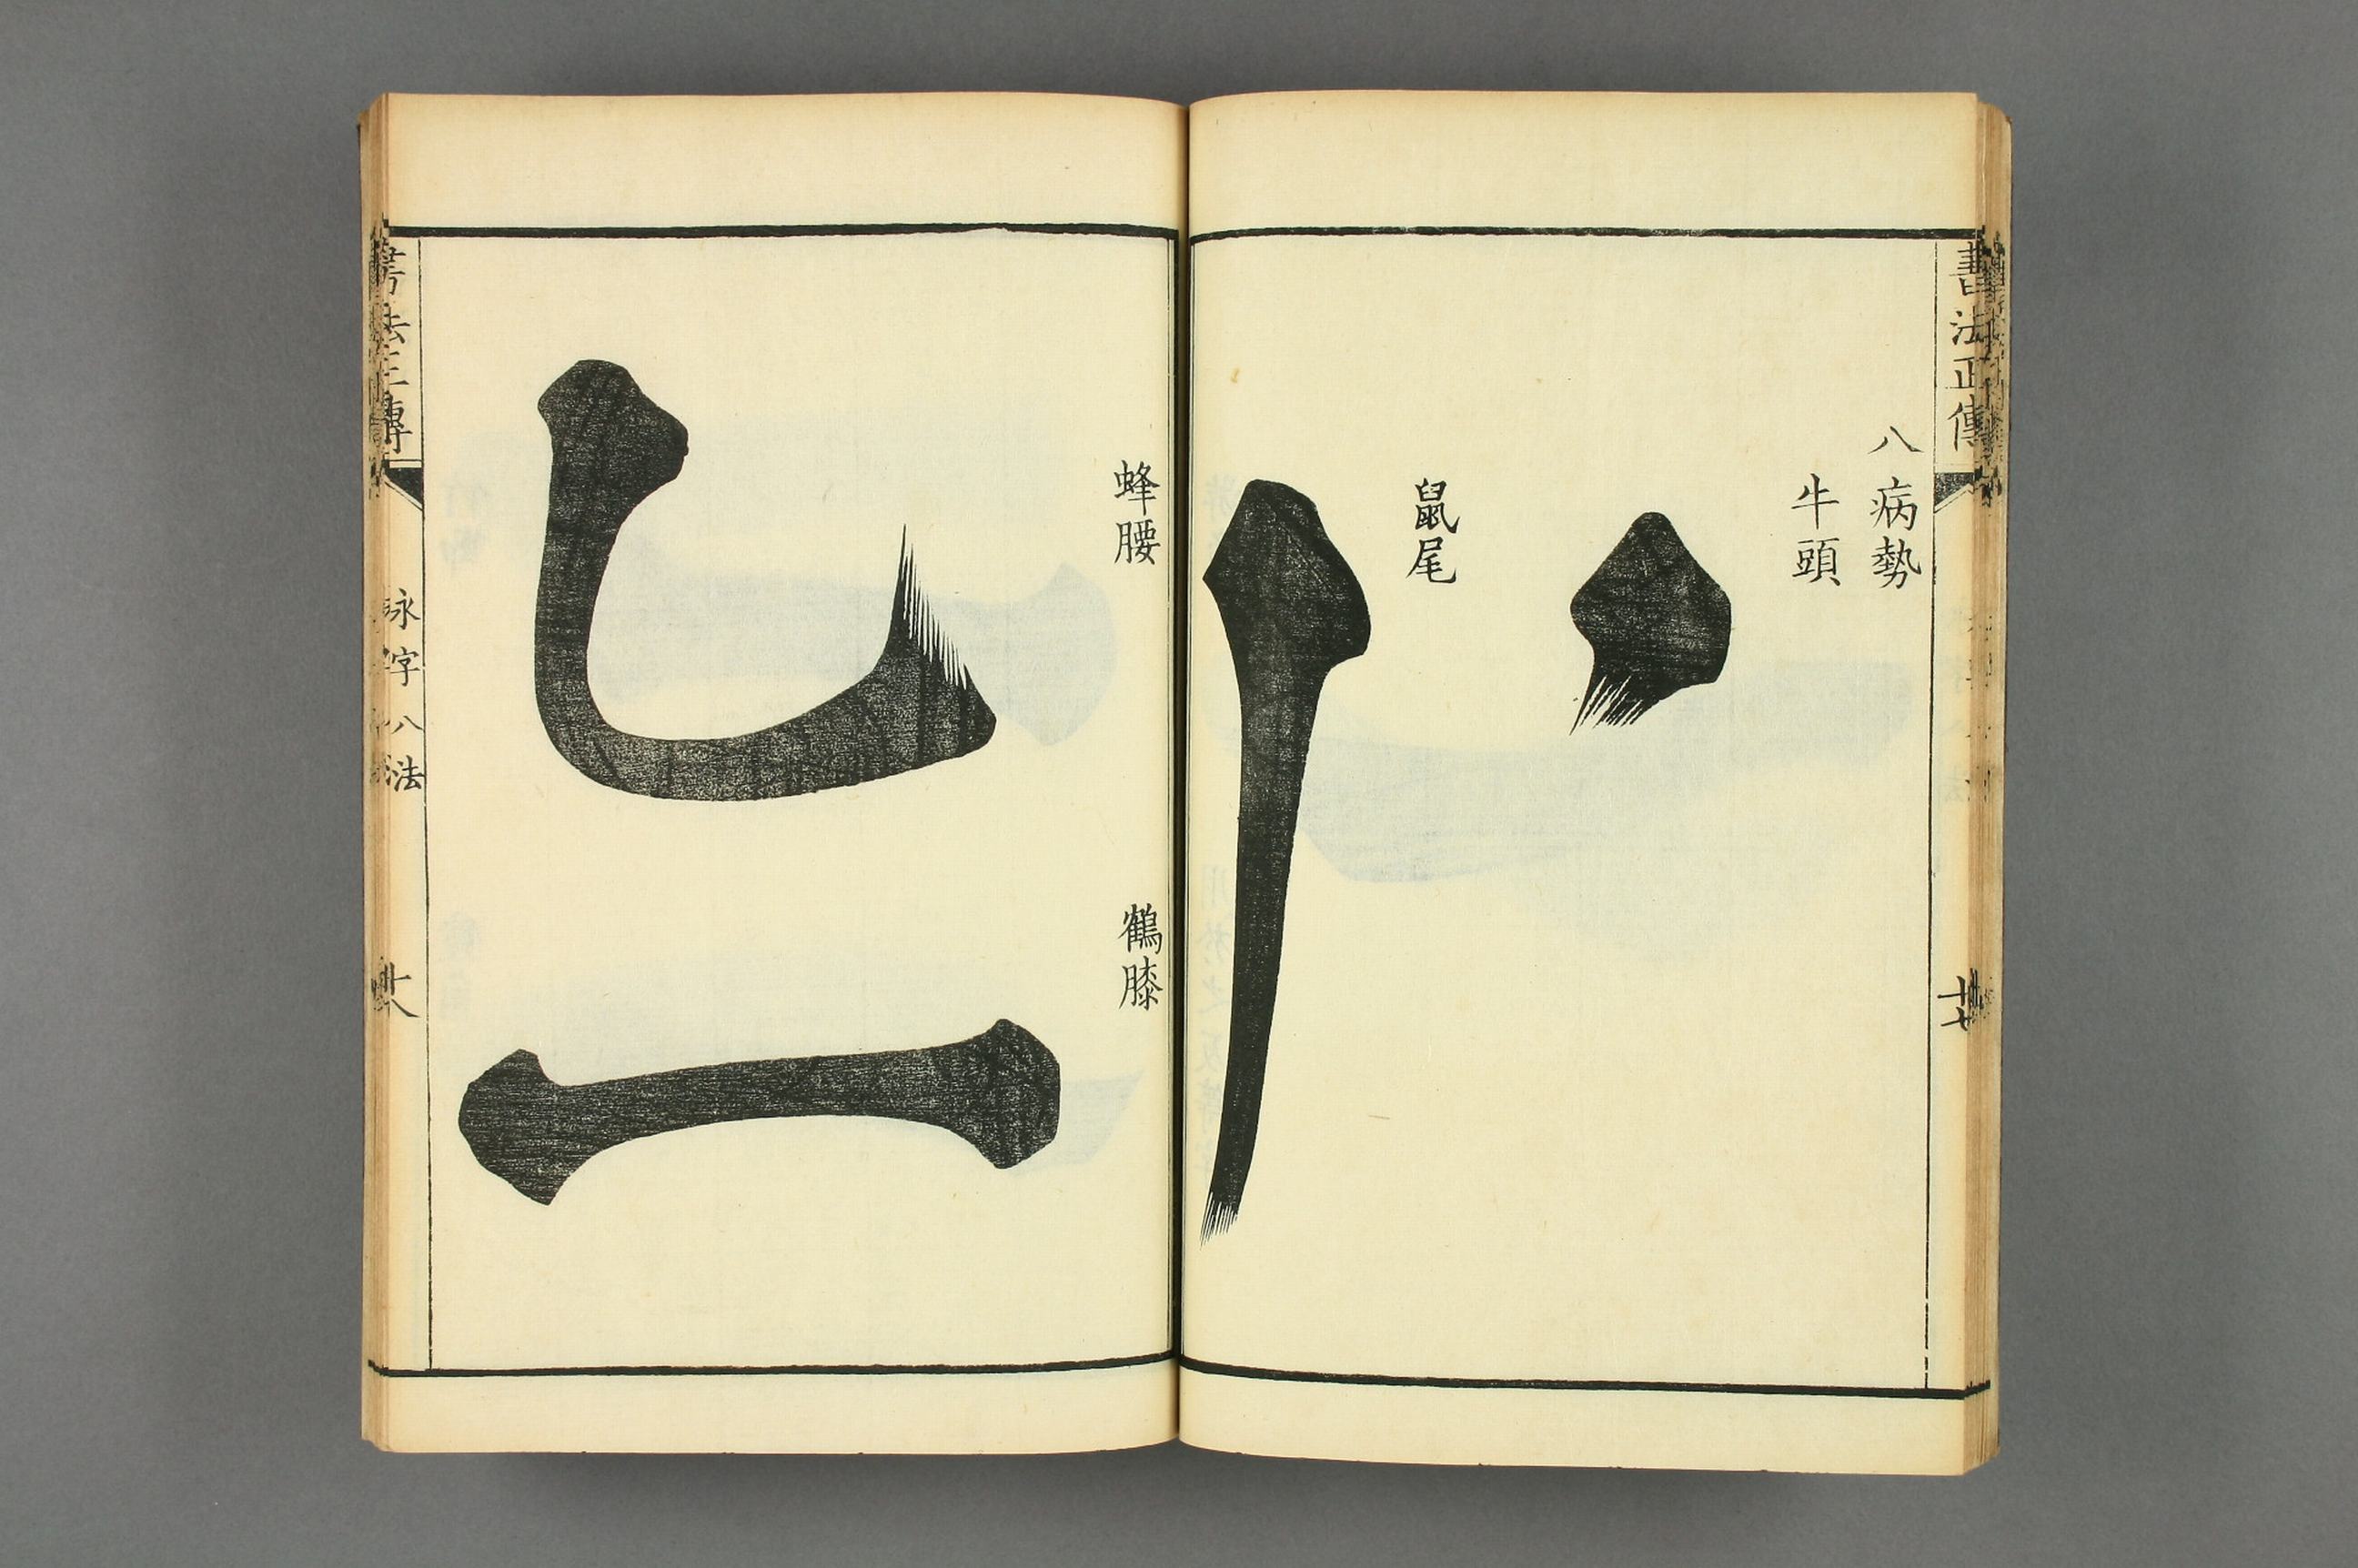 書法正傳
八病勢
牛頭
鼠尾
蜂腰
鶴膝
書法正傳
咏字八法